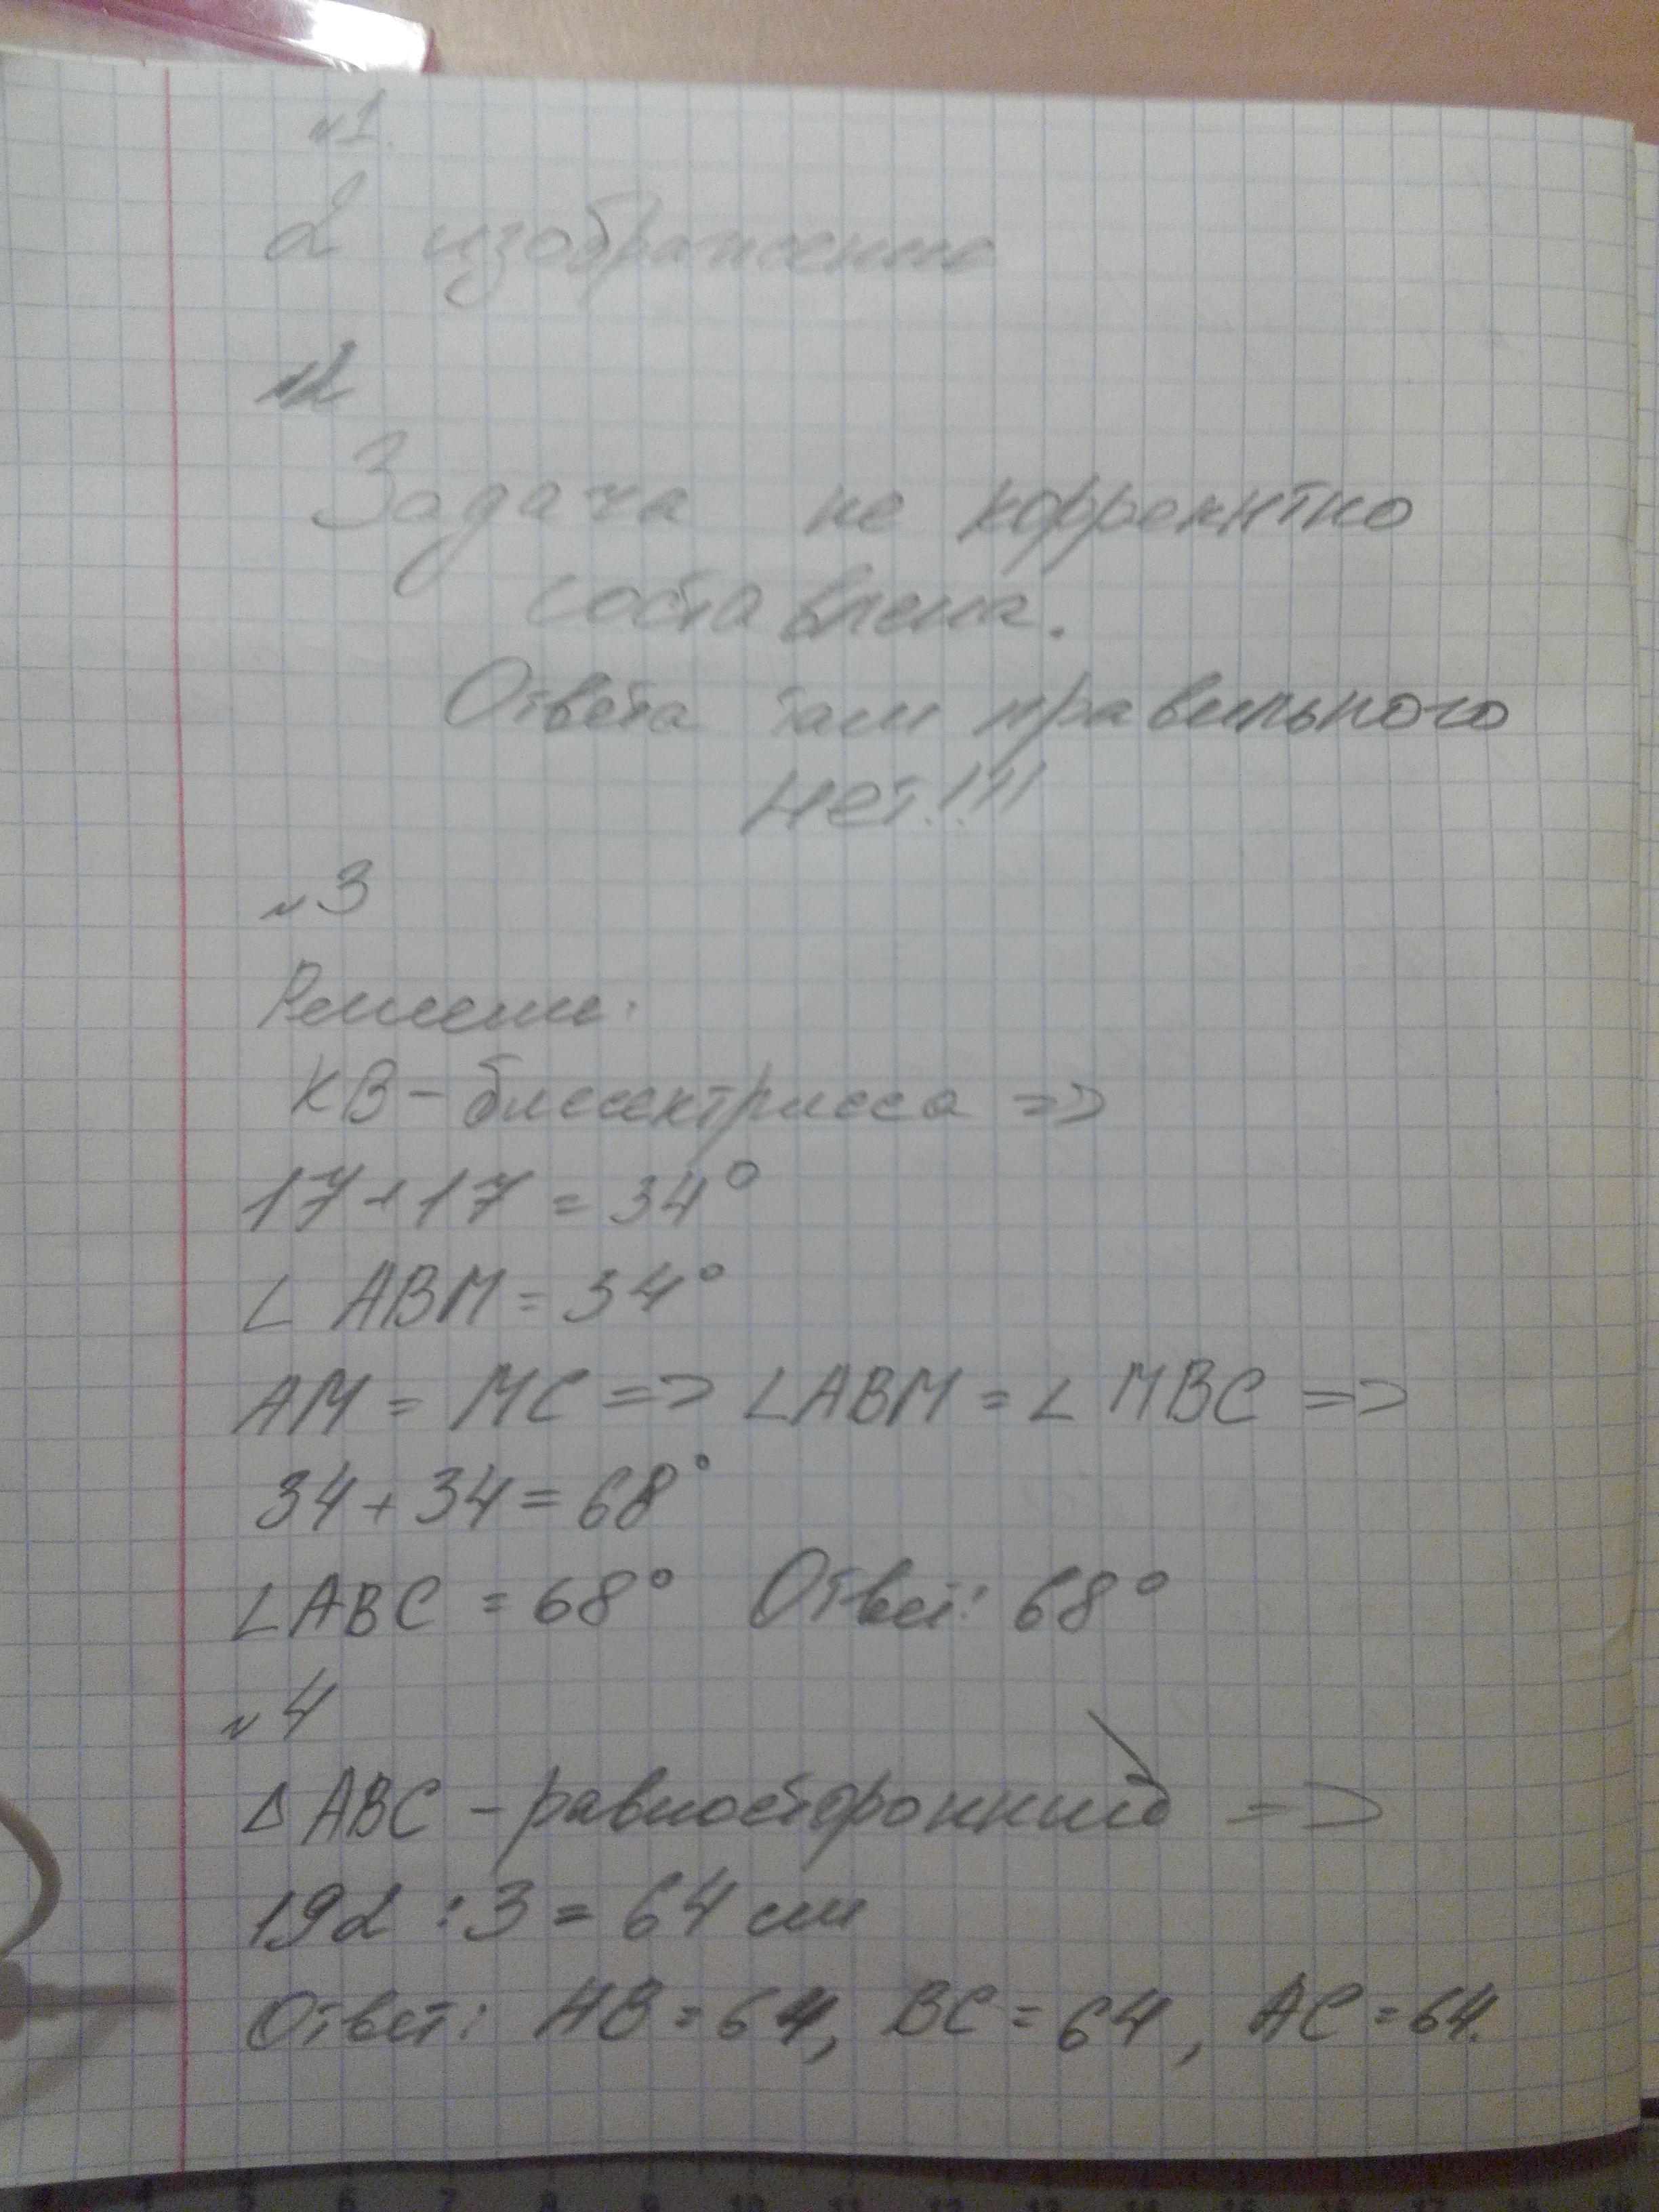 №1.
2 изображение
№2
Задача не корректно
составлена.
Ответа там правильного
нет!!!
№3
Решение:
KB - биссектрисса =>
17+17 = 34°
∠ ABM = 34°
AM = MC => ∠ABM = ∠ MBC =>
34+34=68°
∠ABC = 68° Ответ: 68°
№4
△ABC - равносторонний =>
192 : 3 = 64 см
Ответ: AB = 64, BC = 64, AC = 64.
4 5 6 7 8 9 10 11 12 13 14 15 16 17